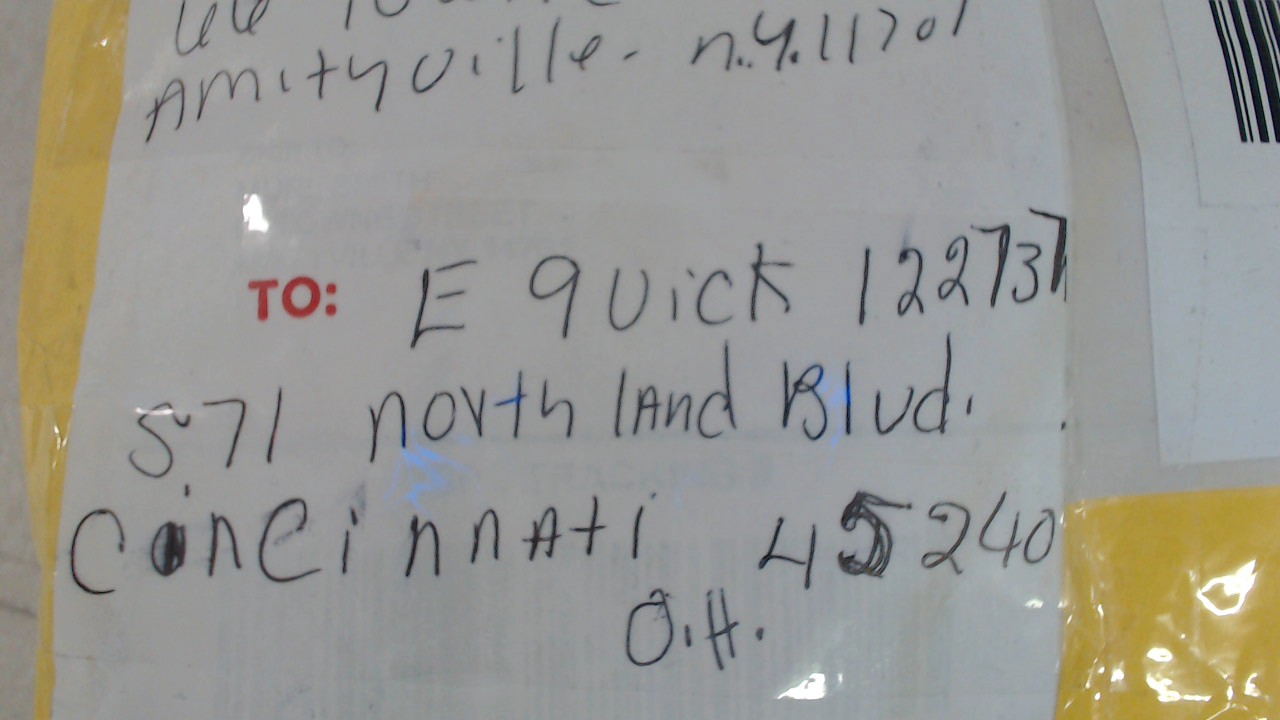 Amityville. n.y. 11701
TO: E quick 122737
571 north land Blvd.
Cincinnati 45240
O.H.